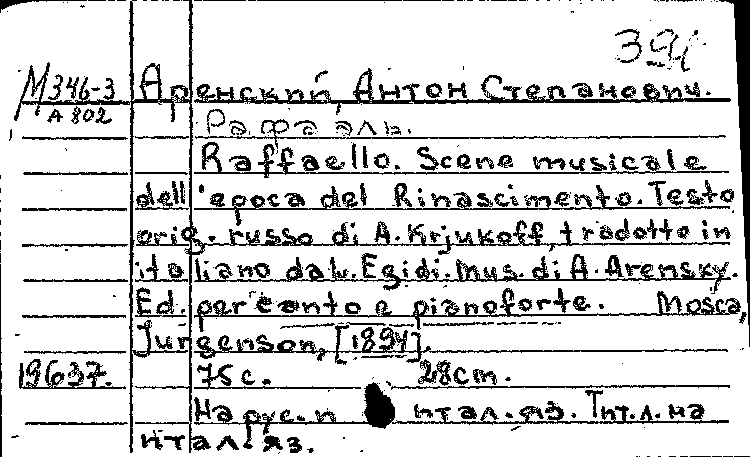 391
М346-3 Аренский, Антон Степанович.
А 802
Рафаэль.
Raffaello. Scene musicale
dell'epoca del Rinascimento. Testo
orig. russo di A. Krjukoff, tradotto in
italiano da L. Egidi. Mus. di A. Arensky.
Ed. per canto e pianoforte. Mosca,
Jurgenson, [1894].
19637. 75 с. 28 cm.
На рус. и итал. яз. Тит. л. на
итал. яз.